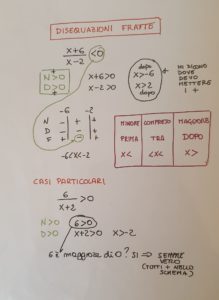 DISEQUAZIONI FRATTE
x+6/x-2 <0
N>0 x+6>0
D>0 x-2>0
dopo
x>-6
x>2
dopo
MI DICONO
DOVE
DEVO
METTERE
I +
-6 -2
N - + +
D - - +
F + - +
-6<x<-2
MINORE COMPRESO MAGGIORE
PRIMA TRA DOPO
x< <x< x>
CASI PARTICOLARI
6/x+2 >0
N>0 6>0
D>0 x+2>0 x>-2
6 è maggiore di 0? SI ⇒ SEMPRE
VERO
(TUTTI + NELLO
SCHEMA)